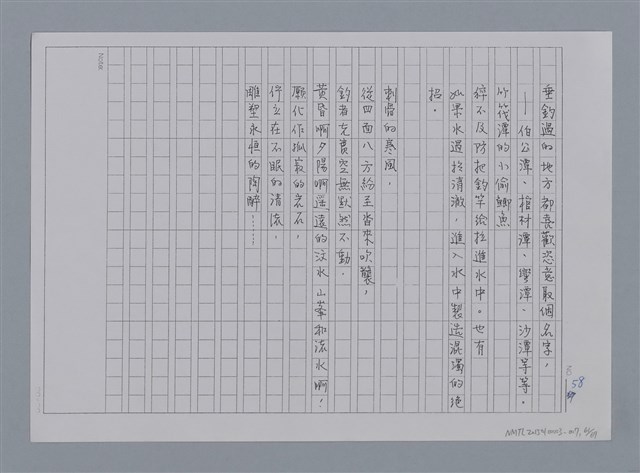 垂釣過的地方都喜歡恣意取個名字，
——伯公潭、棺材潭、彎潭、沙潭等等。
竹筏潭的小偷鯽魚
猝不及防把釣竿給拉進水中。也有
如果水過於清澈，進入水中製造混濁的绝
招。
刺骨的寒風，
從四面八方紛至沓來吹襲，
釣者充耳空無默然不動。
黃昏啊夕陽啊遥遠的汶水山峯和流水啊！
願化作孤寂的岩石，
佇立在不眠的清流，
雕塑永恒的陶醉……
58